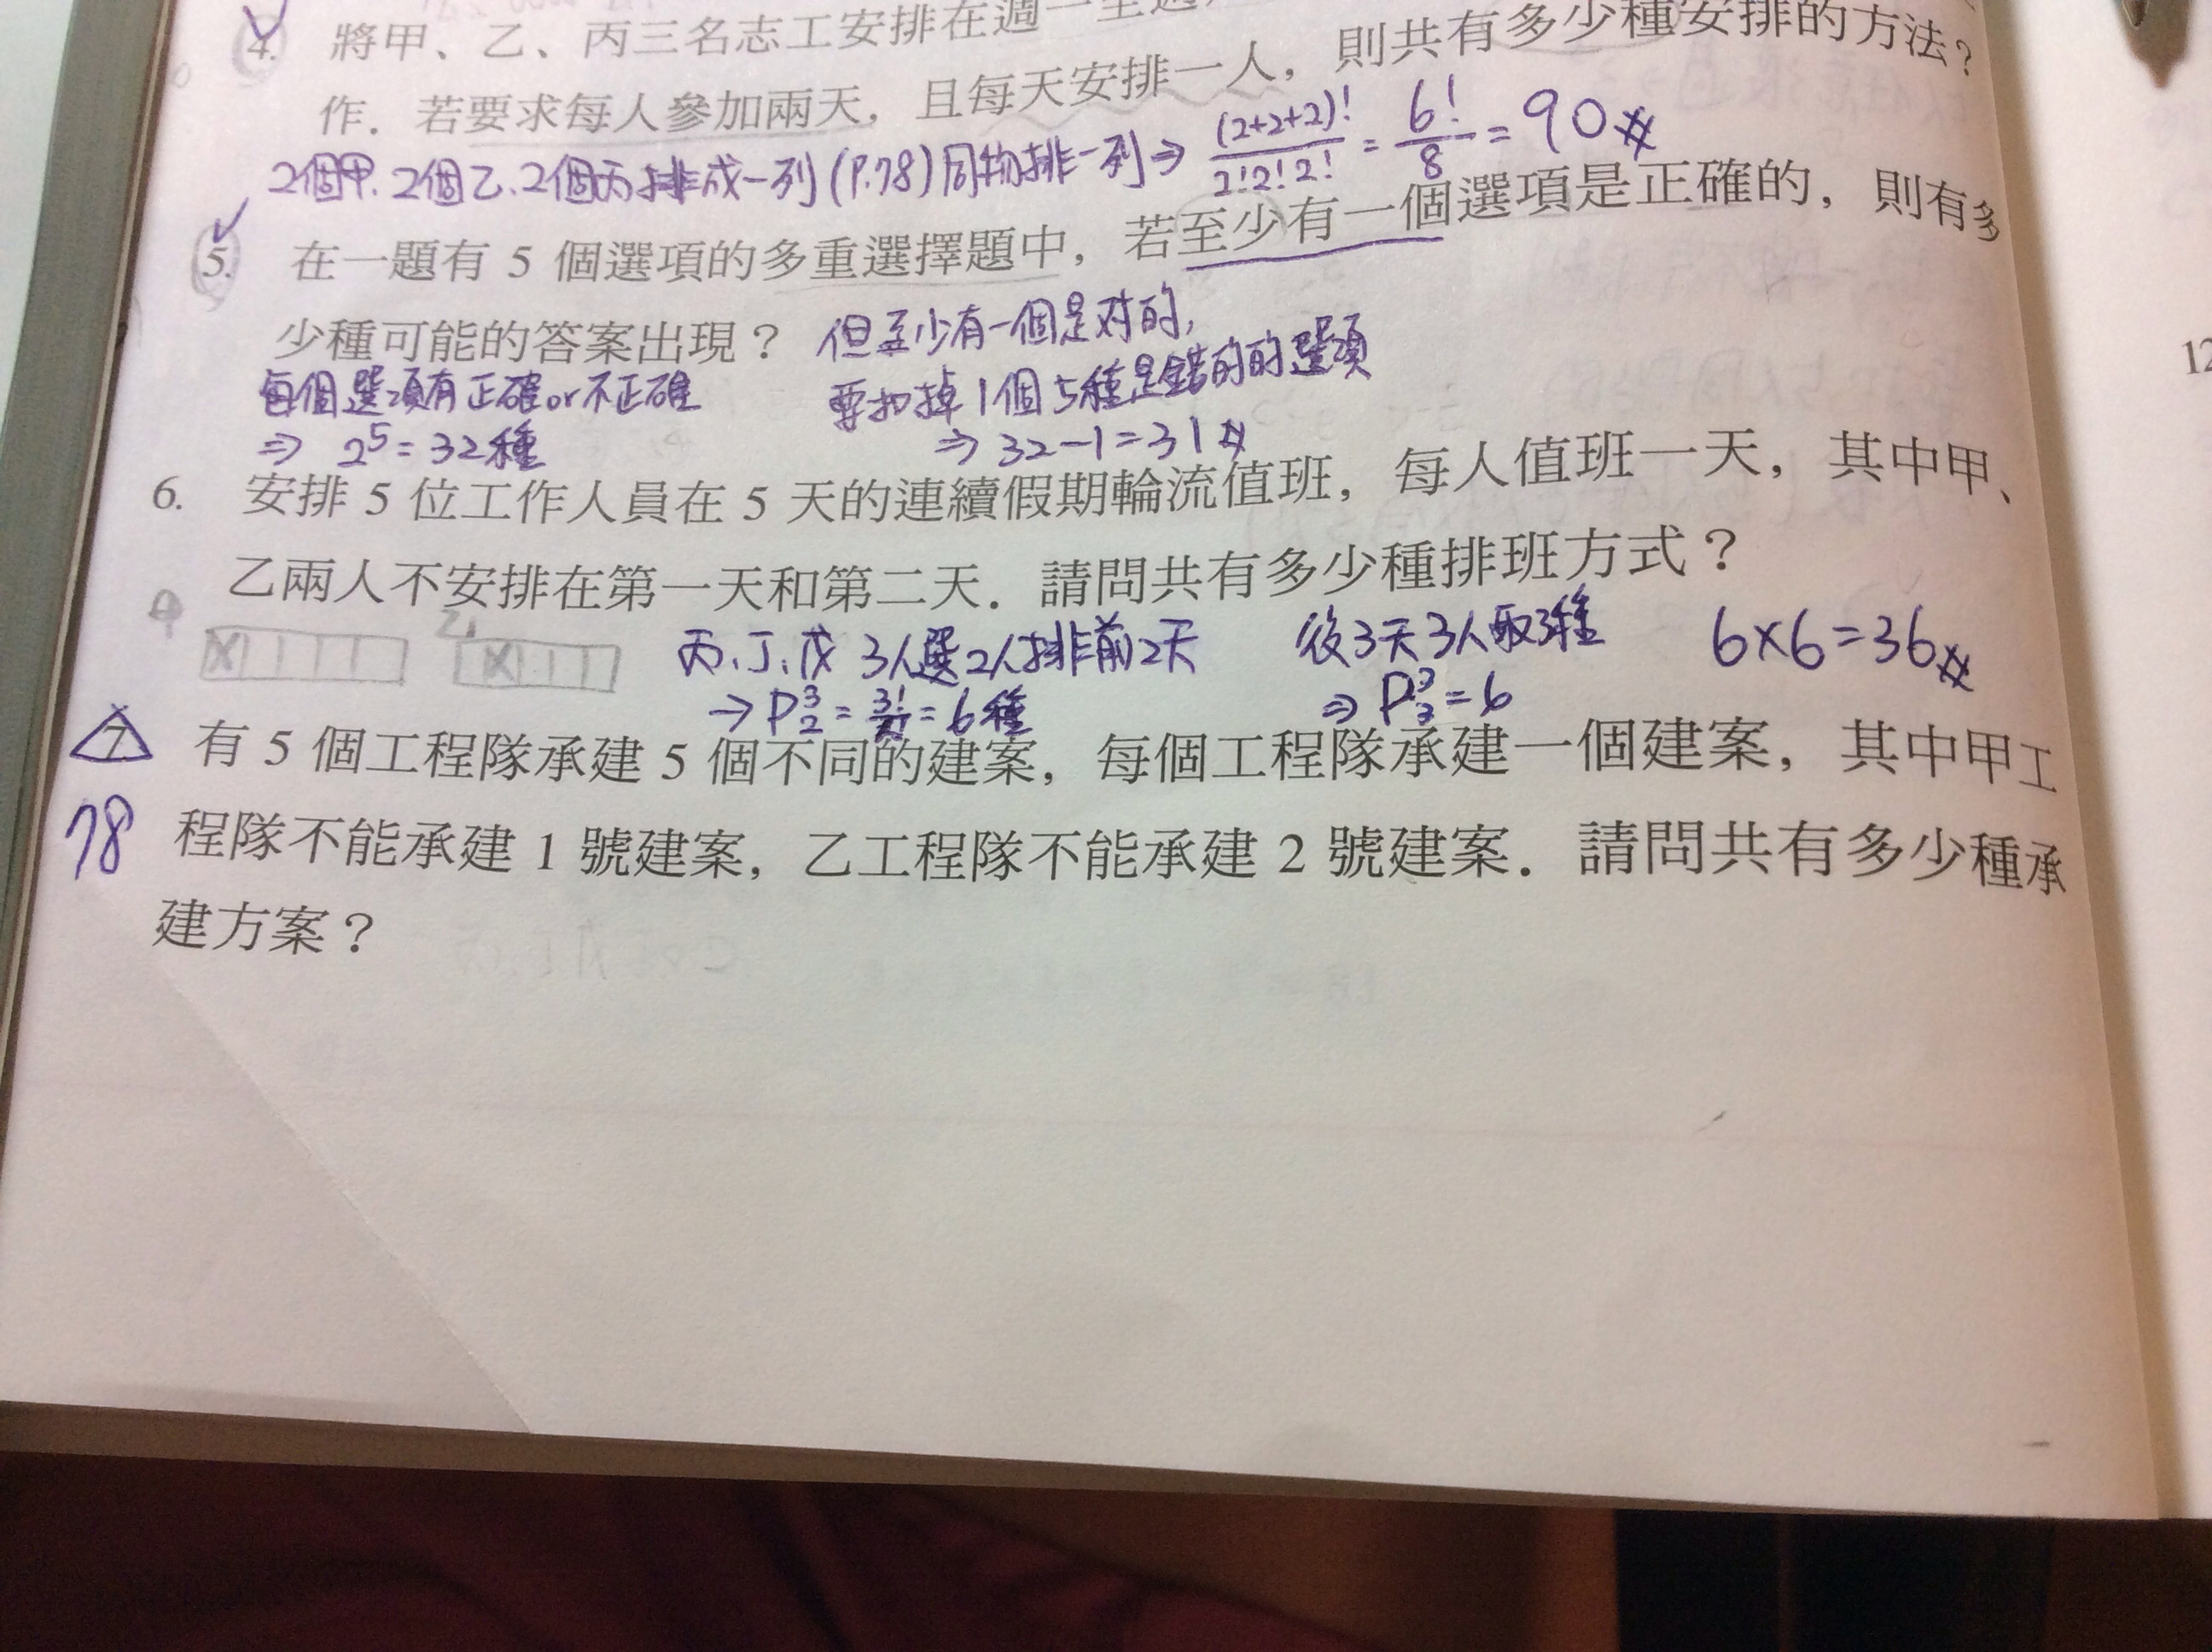 4. 將甲、乙、丙三名志工安排在週一至週
作．若要求每人參加兩天，且每天安排一人，則共有多少種安排的方法？
2個甲.2個乙.2個丙排成一列(P.78)同物排一列⇒ (2+2+2)!/2!2!2! = 6!/8 = 90#
5. 在一題有 5 個選項的多重選擇題中，若至少有一個選項是正確的，則有多
少種可能的答案出現？
每個選項有正確or不正確
⇒ 2^5=32種
但至少有一個是对的,
要扣掉1個5種是錯的的選項
⇒ 32-1=31#
6. 安排 5 位工作人員在 5 天的連續假期輪流值班，每人值班一天，其中甲、
乙兩人不安排在第一天和第二天．請問共有多少種排班方式？
甲 X
乙 X
丙、丁、戊 3人選2人排前2天
→ P^3_2 = 3!/1! = 6種
後3天3人取3種
⇒ P^3_3=6
6×6=36#
7 有 5 個工程隊承建 5 個不同的建案，每個工程隊承建一個建案，其中甲工
78 程隊不能承建 1 號建案，乙工程隊不能承建 2 號建案．請問共有多少種承
建方案？
12